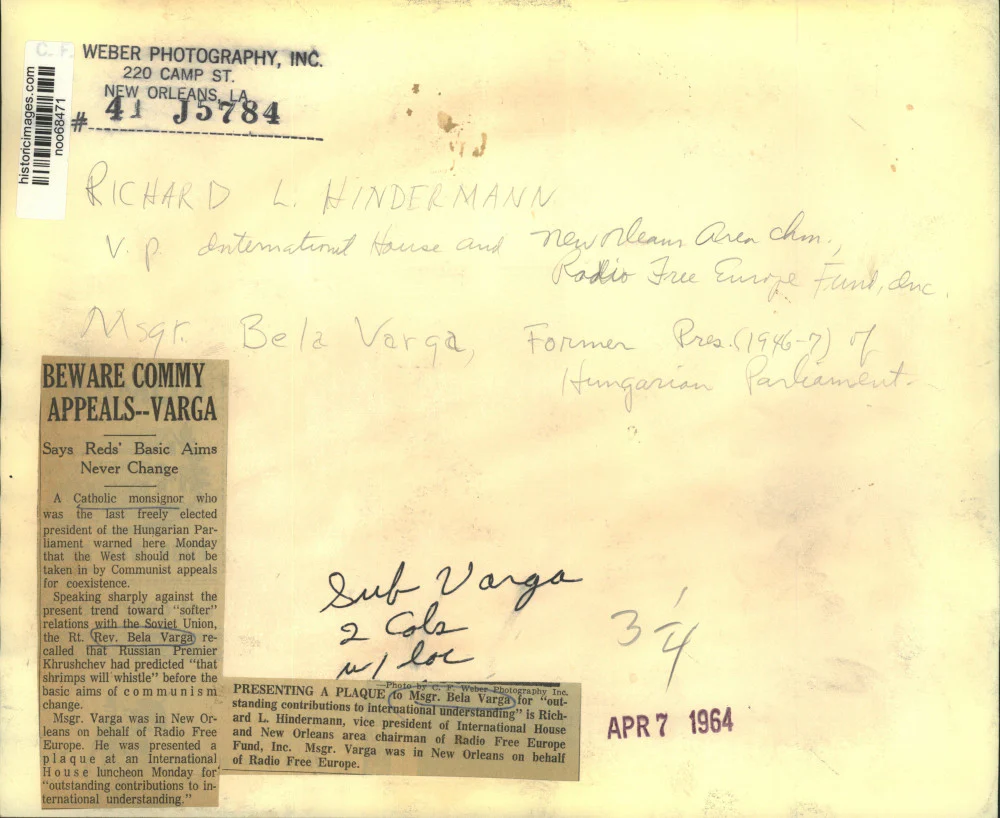 C. F. WEBER PHOTOGRAPHY, INC.
220 CAMP ST.
NEW ORLEANS, LA.
# 41 J5784
historicimages.com
noo68471
RICHARD L. HINDERMANN
V. p. International House and New Orleans Area chm.,
Radio Free Europe Fund, Inc.
Msgr. Bela Varga, Former Pres. (1946-7) of
Hungarian Parliament
BEWARE COMMY
APPEALS--VARGA
Says Reds' Basic Aims
Never Change
A Catholic monsignor who
was the last freely elected
president of the Hungarian Par-
liament warned here Monday
that the West should not be
taken in by Communist appeals
for coexistence.
Speaking sharply against the
present trend toward "softer"
relations with the Soviet Union,
the Rt. Rev. Bela Varga re-
called that Russian Premier
Khrushchev had predicted "that
shrimps will whistle" before the
basic aims of communism
change.
Msgr. Varga was in New Or-
leans on behalf of Radio Free
Europe. He was presented a
plaque at an International
House luncheon Monday for
"outstanding contributions to in-
ternational understanding."
Sub Varga
2 Cols
w/ loc
3 1/4
—Photo by C. F. Weber Photography Inc.
PRESENTING A PLAQUE to Msgr. Bela Varga for "out-
standing contributions to international understanding" is Rich-
ard L. Hindermann, vice president of International House
and New Orleans area chairman of Radio Free Europe
Fund, Inc. Msgr. Varga was in New Orleans on behalf
of Radio Free Europe.
APR 7 1964